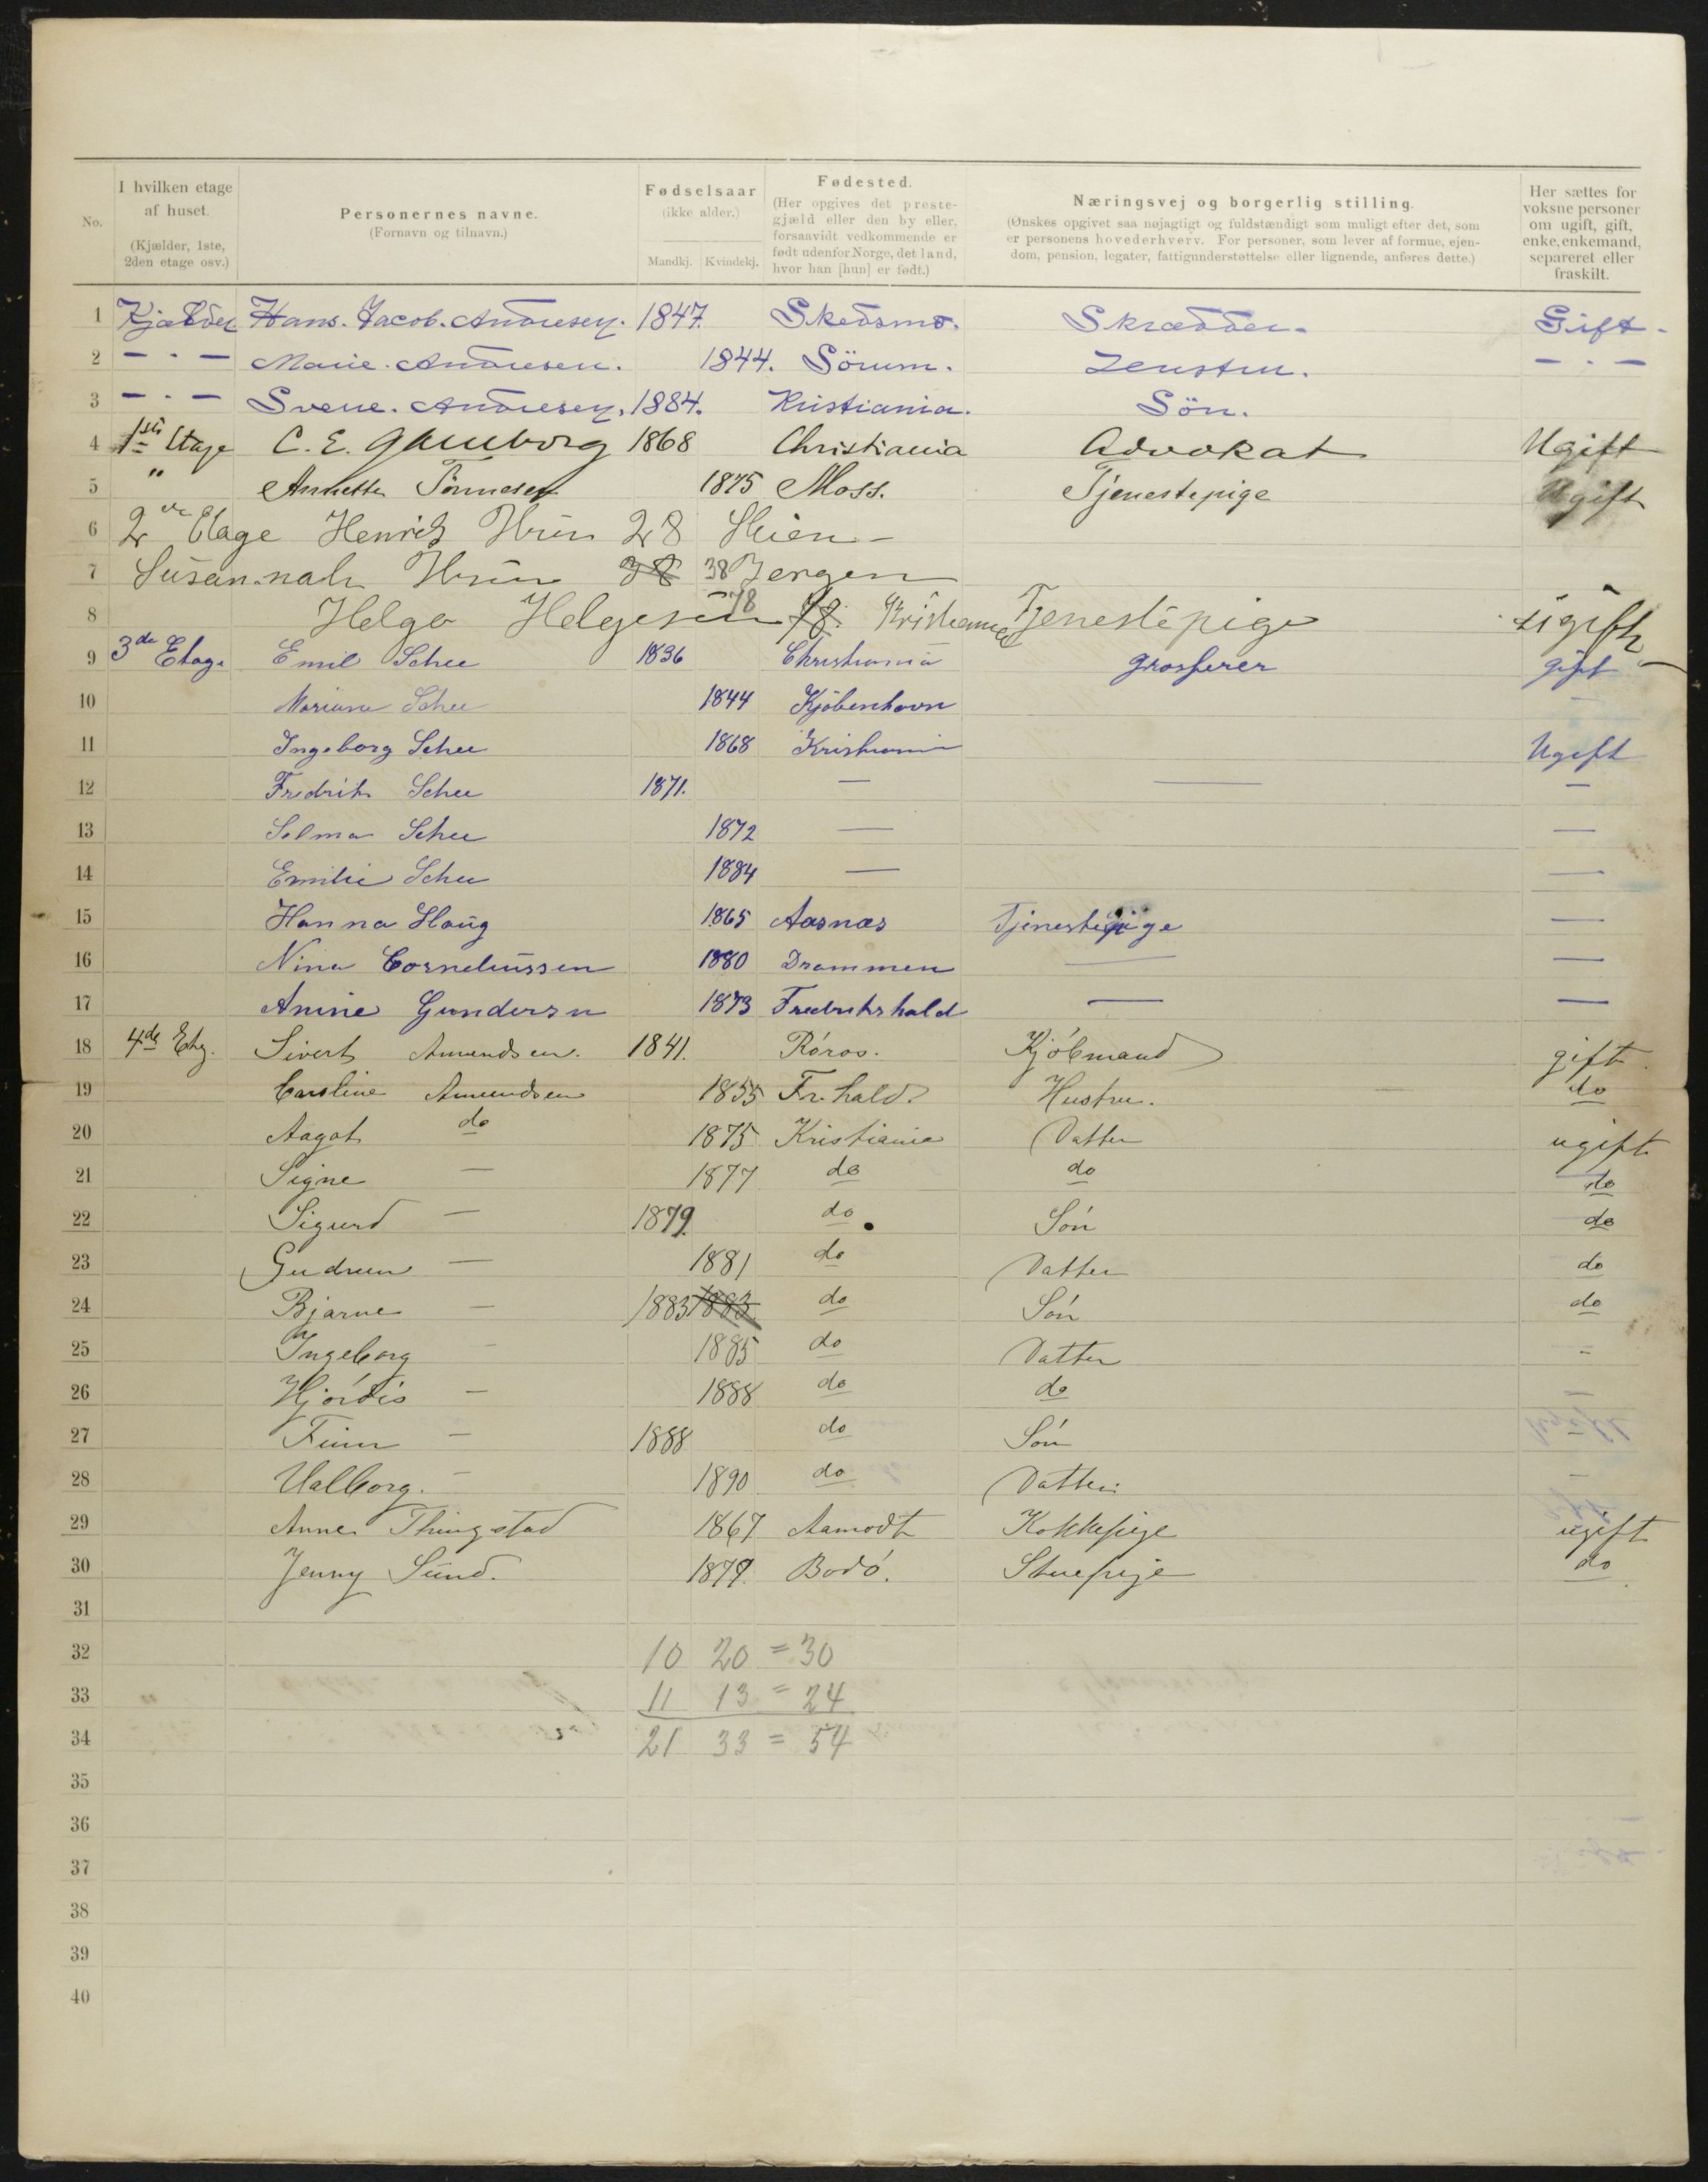 No.
I hvilken etage af huset. (Kjælder, 1ste, 2den etage osv.)
Personernes navne. (Fornavn og tilnavn.)
Fødselsaar (ikke alder.) Mandkj. Kvindekj.
Fødested. (Her opgives det preste-gjæld eller den by eller, forsaavidt vedkommende er født udenfor Norge, det land, hvor han [hun] er født.)
Næringsvej og borgerlig stilling. (Ønskes opgivet saa nøjagtigt og fuldstændigt som muligt efter det, som er personens hovederhverv. For personer, som lever af formue, ejendom, pension, legater, fattigunderstøttelse eller lignende, anføres dette.)
Her sættes for voksne personer om ugift, gift, enke, enkemand, separeret eller fraskilt.
1 Kjælder Hans. Jacob. Andresen. 1847. Skedsmo. Skrædder. Gift.
2 — · — Marie. Andresen. 1844. Sörum. — · —
3 — · — Sverre. Andresen. 1884. Kristiania. Sön.
4 1ste Etage C. E. Gamborg 1868 Christiania Advokat Ugift
5 " Annette Tönnesen 1875 Moss. Tjenestepige Ugift
6 2den Etage Henrik 28 Skien
7 Susannah 38 38 Bergen
8 Helga Helgesen 78 78 Kristiania Tjenestepige ugift
9 3de Etage Emil Schee 1836 Christiania Grosserer gift
10 Mariane Schee 1844 Kjöbenhavn —
11 Ingeborg Schee 1868 Kristiania Ugift
12 Fredrik Schee 1871. — — —
13 Selma Schee 1872 — —
14 Emilie Schee 1884 — —
15 Hanna Haug 1865 Aasnæs Tjenestepige —
16 Nina Corneliussen 1880 Drammen — —
17 Anine Gundersen 1873 Fredrikshald — —
18 4de Etg. Sivert Amundsen. 1841. Röros. Kjöbmand gift
19 Caroline Amundsen 1855 Fr.hald. Hustru. do
20 Aagot do 1875 Kristiania Datter ugift
21 Signe — 1877 do do do
22 Sigurd — 1879. do Sön do
23 Gudrun — 1881 do Datter do
24 Bjarne — 1883 1883 do Sön do
25 Ingeborg — 1885 do Datter -
26 Hjördis — 1888 do do —
27 Finn — 1888 do Sön
28 Valborg. — 1890 do Datter -
29 Anne Thingstad 1867 Aamodt Kokkepige ugift
30 Jenny Sund. 1879. Bodö. Stuepige do
31
32 10 20 = 30
33 11 13 = 24
34 21 33 = 54
35
36
37
38
39
40